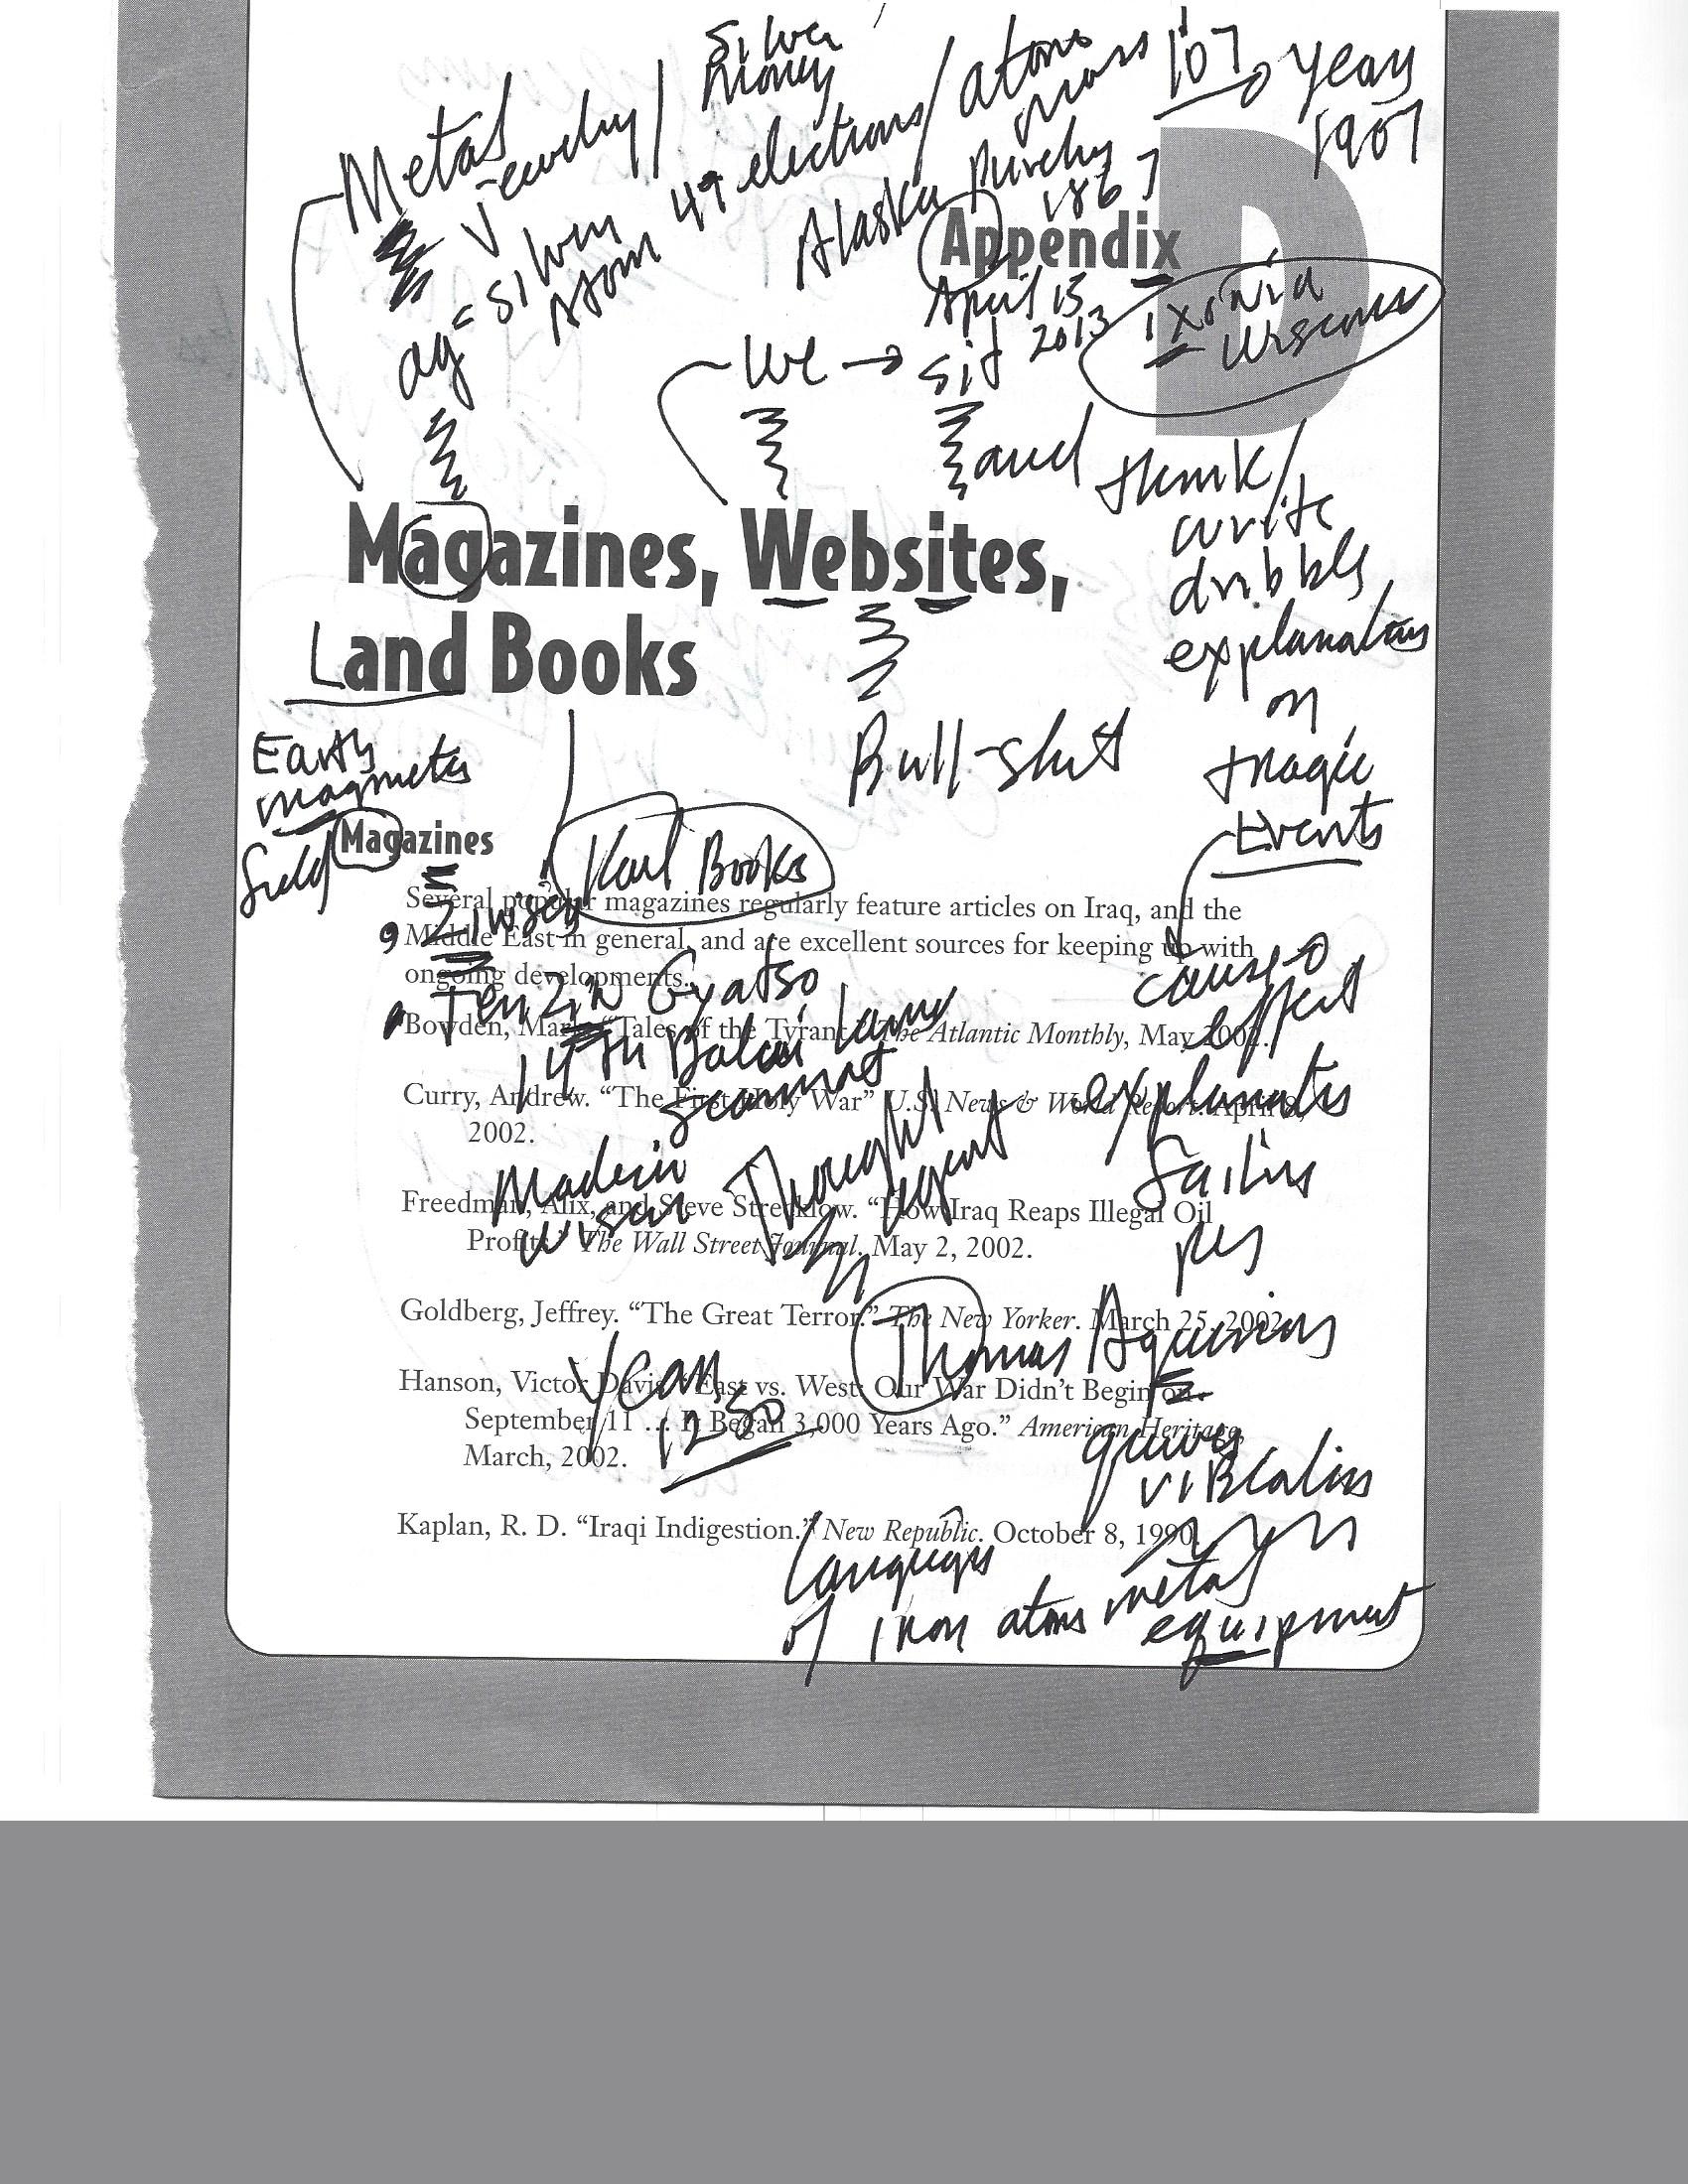 Silver
money
Metal
Jewelry/
49 elections/
atomic
mass
107
years
1907
Alaska Purchas
1867
ag = silver
Atom
Appendix
D
April 15
2013
Ixonia
Wiscons
We → sit
and
think/
write
dribbly
explanations
on
tragic
Events
Magazines, Websites,
Land Books
Bull-shit
Earth
magnetic
field
Magazines
Karl Books
Several popular magazines regularly feature articles on Iraq, and the
Middle East in general, and are excellent sources for keeping up with
ongoing developments.
Tenzin Gyatso
14th Dalai Lama
cause
effect
explanatin
Bowden, Mark. “Tales of the Tyrant.” The Atlantic Monthly, May 2002.
Curry, Andrew. “The First Holy War” U.S. News & World Report. April 8,
2002.
Modern
Thought
Freedman, Alix, and Steve Strecklow. “How Iraq Reaps Illegal Oil
Profits.” The Wall Street Journal. May 2, 2002.
Goldberg, Jeffrey. “The Great Terror.” The New Yorker. March 25, 2002.
Thomas Aquinas
Year
1250
Hanson, Victor Davis. “East vs. West: Our War Didn’t Begin on
September 11 … It Began 3,000 Years Ago.” American Heritage,
March, 2002.
Kaplan, R. D. “Iraqi Indigestion.” New Republic. October 8, 1990.
Languages
of iron atoms metal
equipment